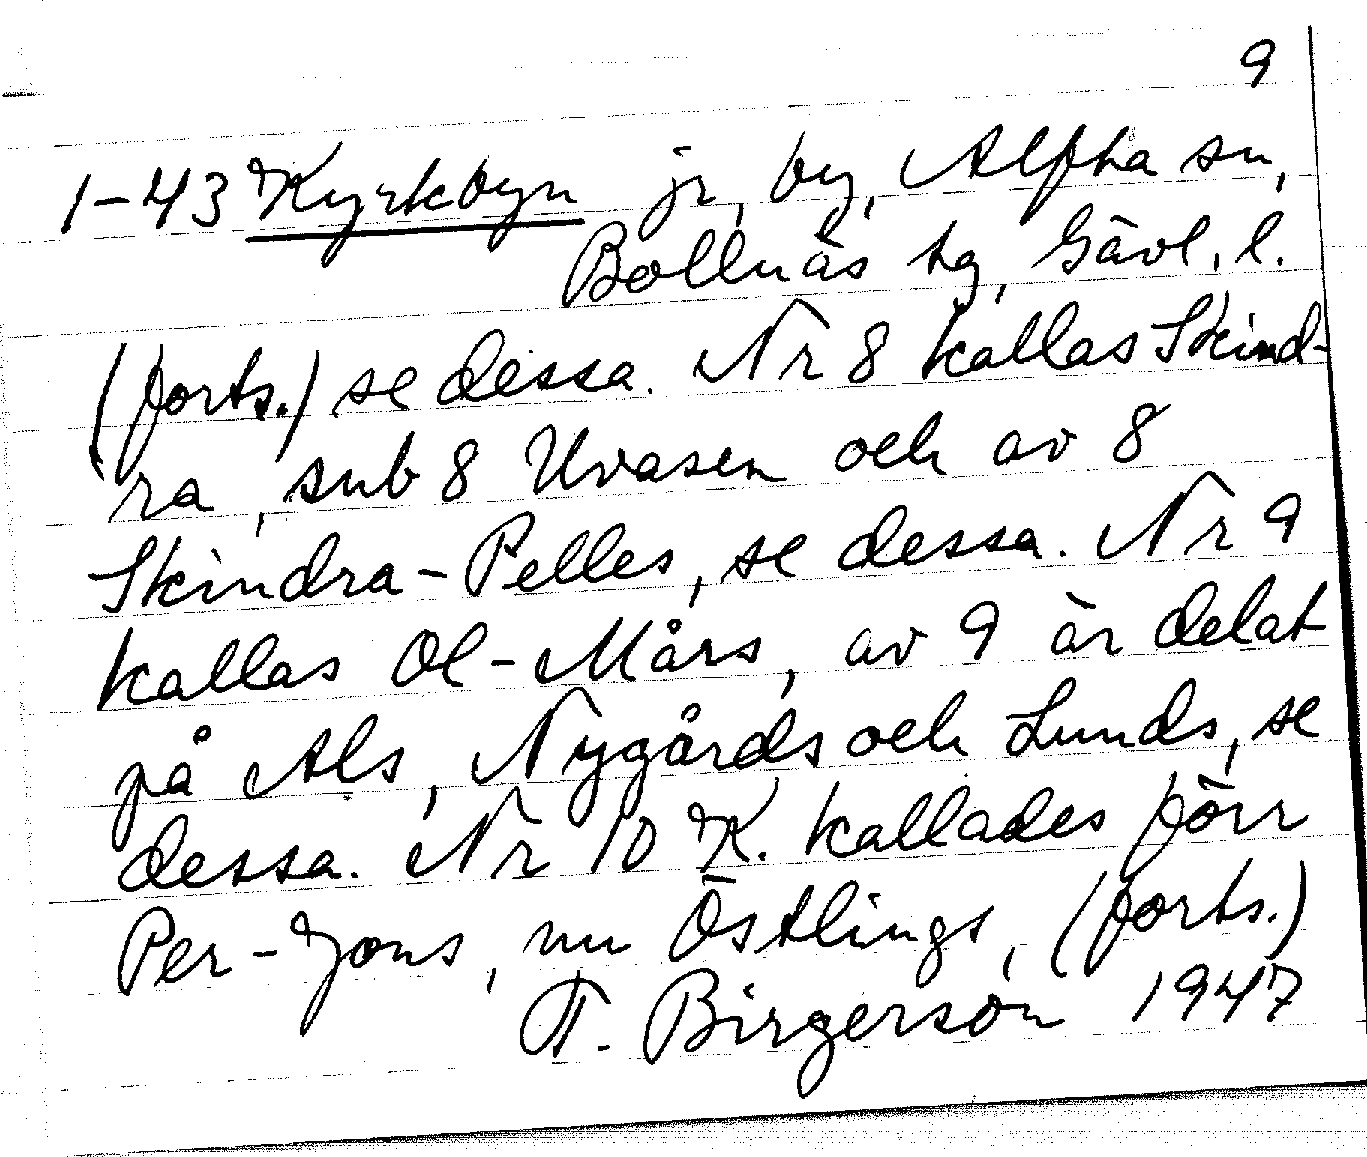 9
1-43 Kyrkbyn jr, by, Alfta sn,
Bollnäs tg, Gävl. l.
(forts.) se dessa. Nr 8 kallas Skind-
ra, sub 8 Uvasen och av 8
Skindra-Pelles, se dessa. Nr 9
kallas Ol-Mårs, av 9 är delat
på Als, Nygårds och Lunds, se
dessa. Nr 10 K. kallades förr
Per-Jons, nu Östlings, (forts.)
T. Birgerson 1947